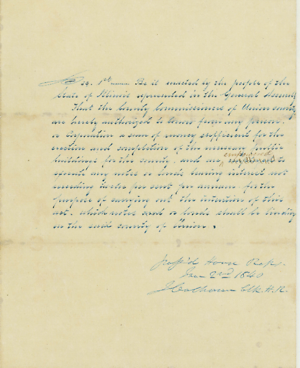 Sec. 1st Be it enacted by the people of the
State of Illinois represented in the General Assembly
That the County Commissioners of Union county
are hereby authorized to borrow from any person
or Corporation a sum of money sufficient for the
erection and completion of the necessary Public
buildings for the county, and are to
any notes or bonds bearing interest not
exceeding twelve per cent per annum for the
purpose of carrying out the intention of this
act, which notes and or bonds shall be binding
on the said county of Union.
Passed House Reps.
Jan 2nd 1840
J Calhoun Clk H.R.